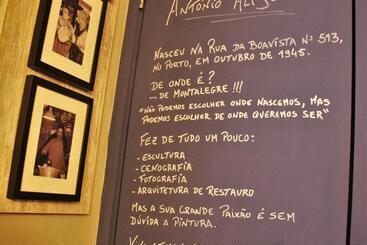 ANTÓNIO
NASCEU NA RUA DA BOAVISTA Nº 513,
NO PORTO, EM OUTUBRO DE 1945.
DE ONDE É?
... DE MONTALEGRE!!!
"NÃO PODEMOS ESCOLHER ONDE NASCEMOS, MAS
PODEMOS ESCOLHER DE ONDE QUEREMOS SER"
FEZ DE TUDO UM POUCO:
- ESCULTURA
- CENOGRAFIA
- FOTOGRAFIA
- ARQUITETURA DE RESTAURO
MAS A SUA GRANDE PAIXÃO É SEM
DÚVIDA A PINTURA.